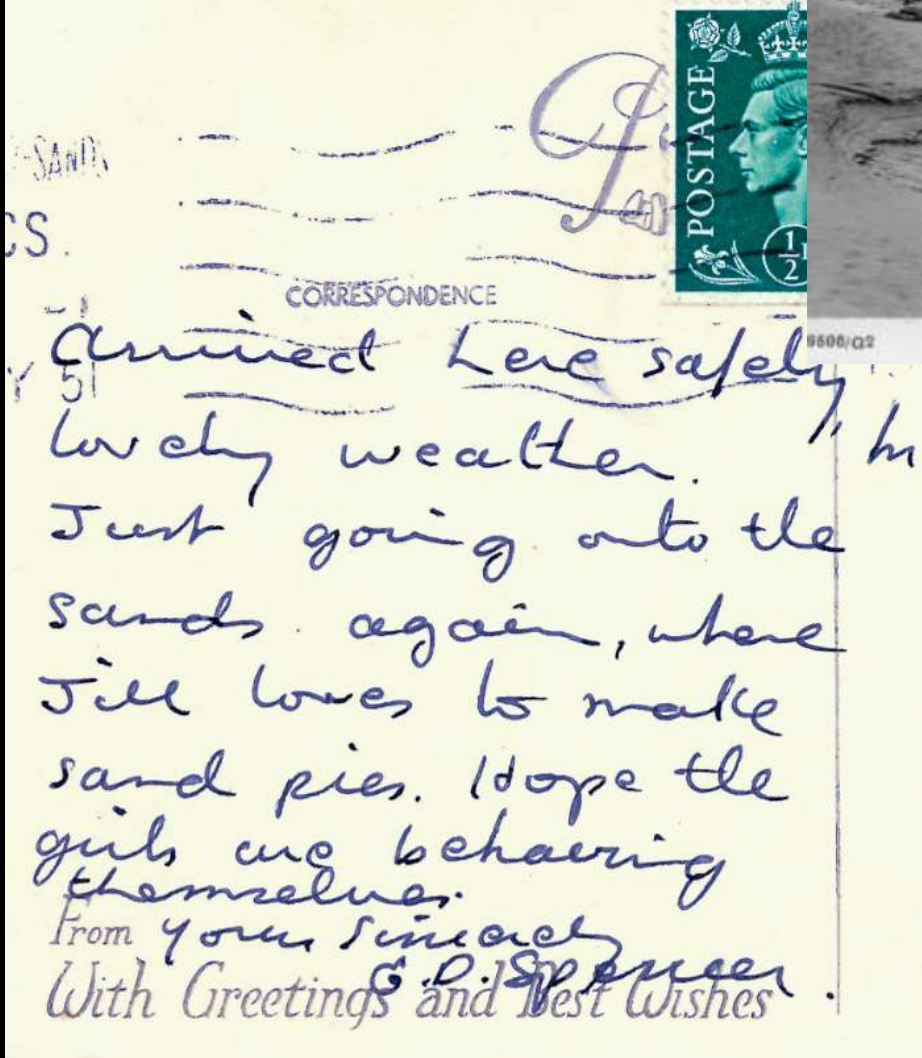 -SANDS
CS.
POSTAGE
1/2
CORRESPONDENCE
9506/G2
Y 51
Arrived here safely,
lovely weather.
Just going onto the
sands again, where
Jill loves to make
sand pies. Hope the
girls are behaving
themselves.
From Yours Sincerely
G. D. Spencer.
With Greetings and Best Wishes